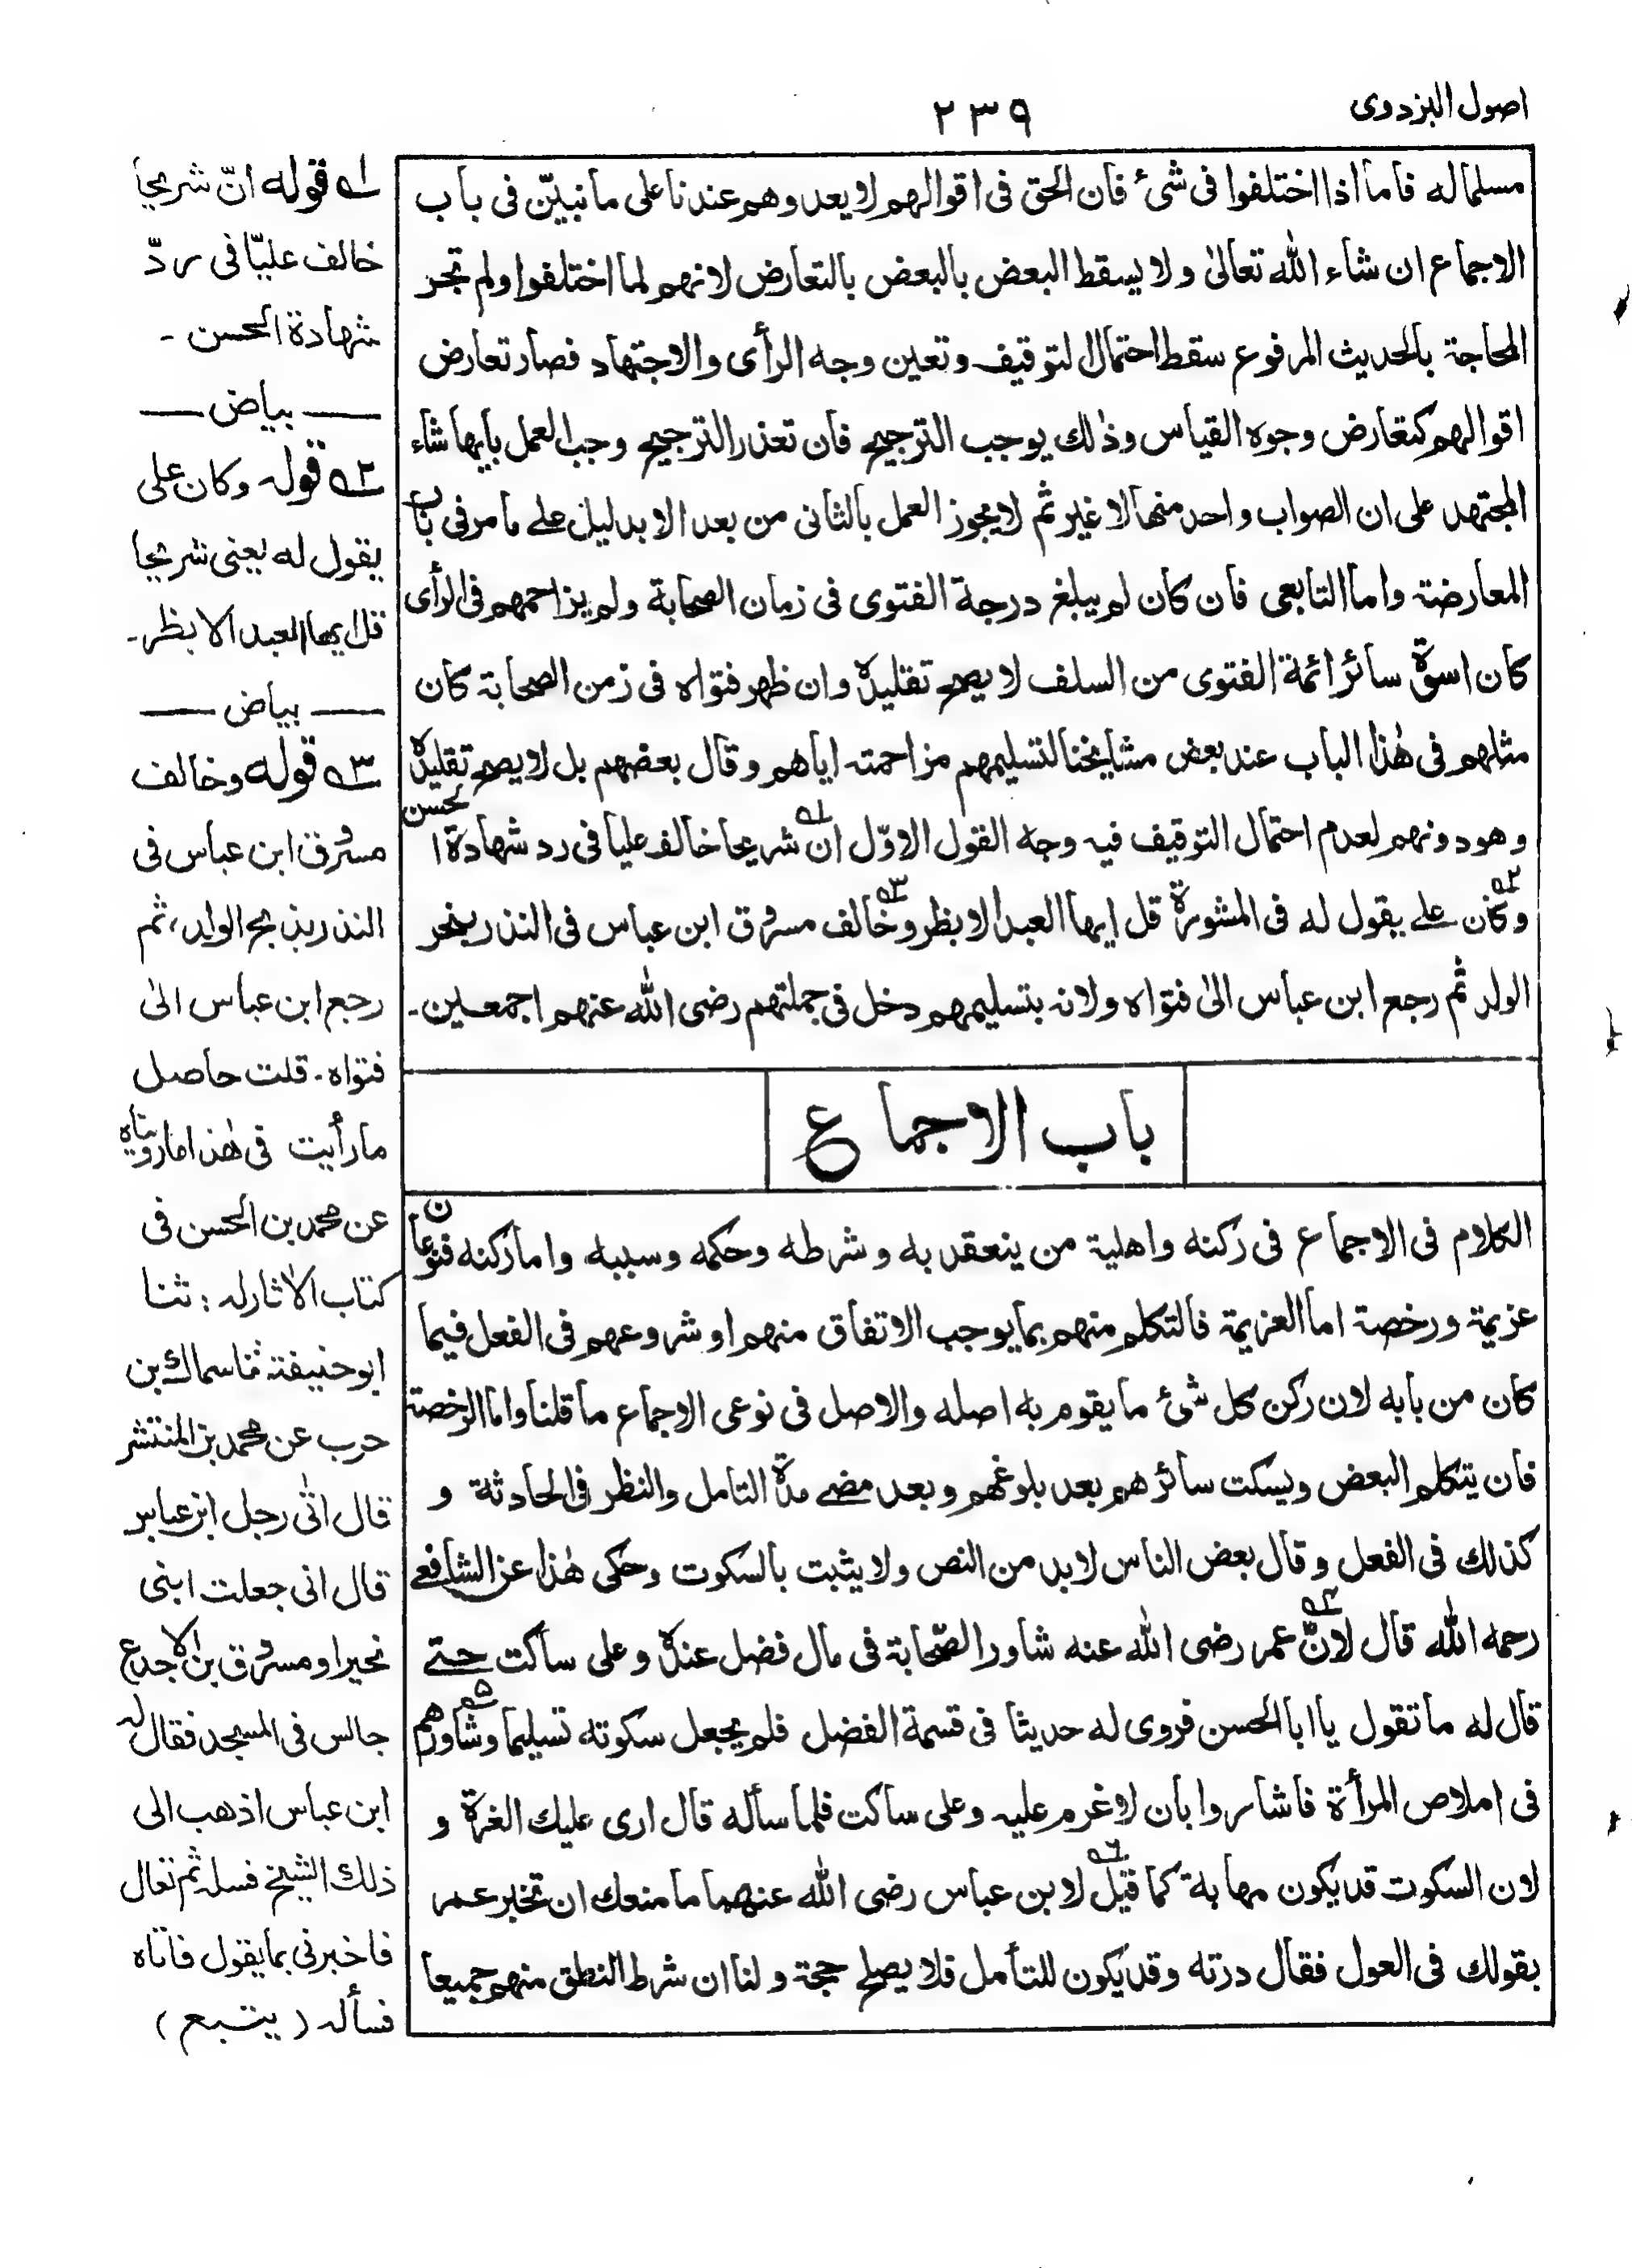 اصول البزدوى
٢٣٩
مسلما له فاما اذا اختلفوا فى شئ فان الحق فى اقوالهم لا يعدوهم عندنا على ما نبيّن فى باب
الاجماع ان شاء الله تعالىٰ ولا يسقط البعض بالبعض بالتعارض لانهم لما اختلفوا ولم تجر
المحاجة بالحديث المرفوع سقط احتمال التوقيف وتعين وجه الرأى والاجتهاد فصار تعارض
اقوالهم كتعارض وجوه القياس وذٰلك يوجب الترجيح فان تعذر الترجيح وجب العمل بايها شاء
المجتهد على ان الصواب واحد منها لا غير ثم لا يجوز العمل بالثانى من بعد الا بدليل على ما مر فى باب
المعارضة واما التابعى فان كان لم يبلغ درجة الفتوى فى زمان الصحابة ولم يزاحمهم فى الرأى
كان اسوة سائر ائمة الفتوى من السلف لا يصح تقليده وان ظهر فتواه فى زمن الصحابة كان
مثلهم فى هٰذا الباب عند بعض مشايخنا لتسليمهم مزاحمته اياهم وقال بعضهم بل لا يصح تقليده
وهو دونهم لعدم احتمال التوقيف فيه وجه القول الاوّل ان١ شريحا خالف عليا فى رد شهادة الحسن
وكان٢ على يقول له فى المشورة قل ايها العبد الابظر وخالف٣ مسروق ابن عباس فى النذر بنحر
الولد ثم رجع ابن عباس الىٰ فتواه ولانه بتسليمهم دخل فى جملتهم رضى الله عنهم اجمعين۔
باب الاجماع
الكلام فى الاجماع فى ركنه واهلية من ينعقد به وشرطه وحكمه وسببه واما ركنه فنوعان
عزيمة ورخصة اما العزيمة فالتكلم منهم بما يوجب الاتفاق منهم او شروعهم فى الفعل فيما
كان من بابه لان ركن كل شئ ما يقوم به اصله والاصل فى نوعى الاجماع ما قلنا واما الرخصة
فان يتكلم البعض ويسكت سائرهم بعد بلوغهم وبعد مضى مدة التامل والنظر فى الحادثة و
كذلك فى الفعل وقال بعض الناس لابد من النص ولا يثبت بالسكوت وحكى هٰذا عن الشافعى
رحمه الله قال لانّ٤ عمر رضى الله عنه شاور الصّحابة فى مال فضل عنده وعلى ساكت حتى
قال له ما تقول يا ابا الحسن فروى له حديثا فى قسمة الفضل فلم يجعل سكوته تسليما وشاورهم٥
فى املاص المرأة فاشاروا بان لا غرم عليه وعلى ساكت فلما سأله قال ارى عليك الغرة و
لان السكوت قد يكون مهابة كما قيل٦ لابن عباس رضى الله عنهما ما منعك ان تخبر عمر
بقولك فى العول فقال درته وقد يكون للتأمل فلا يصلح حجة ولنا ان شرط النطق منهم جميعا
١ قوله انّ شريحا
خالف عليّا فى ردّ
شهادة الحسن ۔
بياض
٢ قوله وكان على
يقول له يعنى شريحا
قل ايها العبد الابظر۔
بياض
٣ قوله وخالف
مسروق ابن عباس فى
النذر بذبح الولد، ثم
رجع ابن عباس الىٰ
فتواه۔ قلت حاصل
ما رأيت فى هٰذا ما رويناه
عن محمد بن الحسن فى
كتاب الاٰثار له : ثنا
ابو حنيفة ثنا سماك بن
حرب عن محمد بن المنتشر
قال اتٰى رجل ابن عباس
قال انى جعلت ابنى
نحيرا ومسروق بن الاجدع
جالس فى المسجد فقال له
ابن عباس اذهب الى
ذلك الشيخ فسله ثم تعال
فاخبرنى بما يقول فاتاه
فسأله (يتبع)